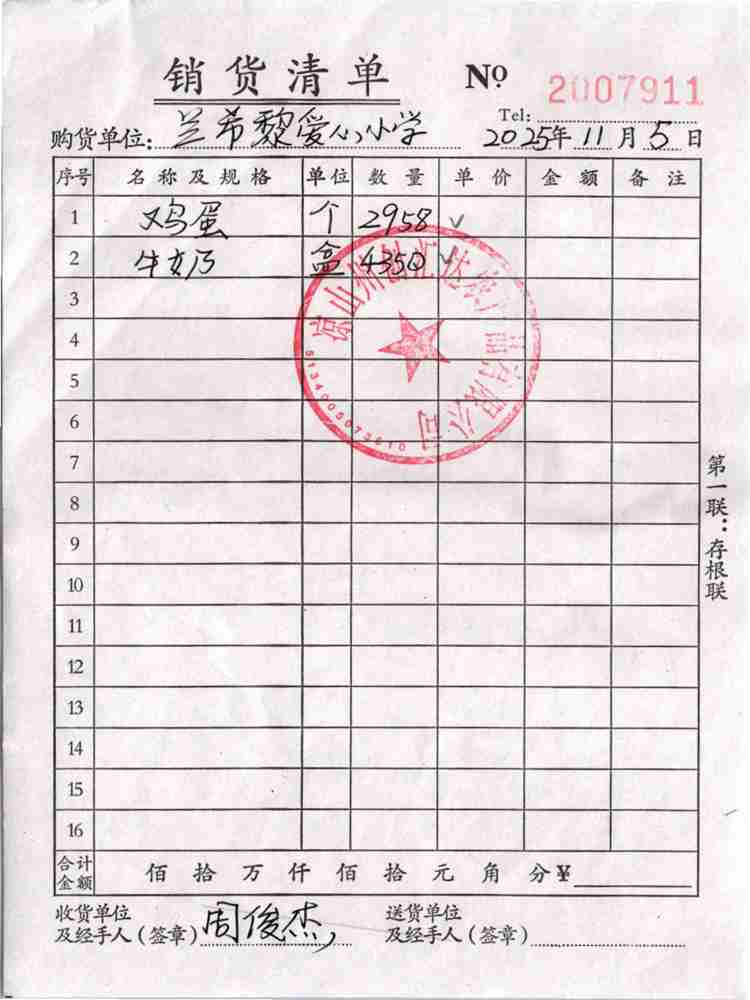 销货清单 Nº 2007911
Tel:
购货单位: 兰希黎爱心小学 2025年11月5日
序号 名称及规格 单位 数量 单价 金额 备注
1 鸡蛋 个 2958 ✓
2 牛奶 盒 4350 ✓
3
4
5
6
7
8
9
10
11
12
13
14
15
16
合计金额 佰 拾 万 仟 佰 拾 元 角 分 ¥
收货单位
及经手人(签章) 周俊杰
送货单位
及经手人(签章)
第一联:存根联
凉山州创汇达农产品有限公司